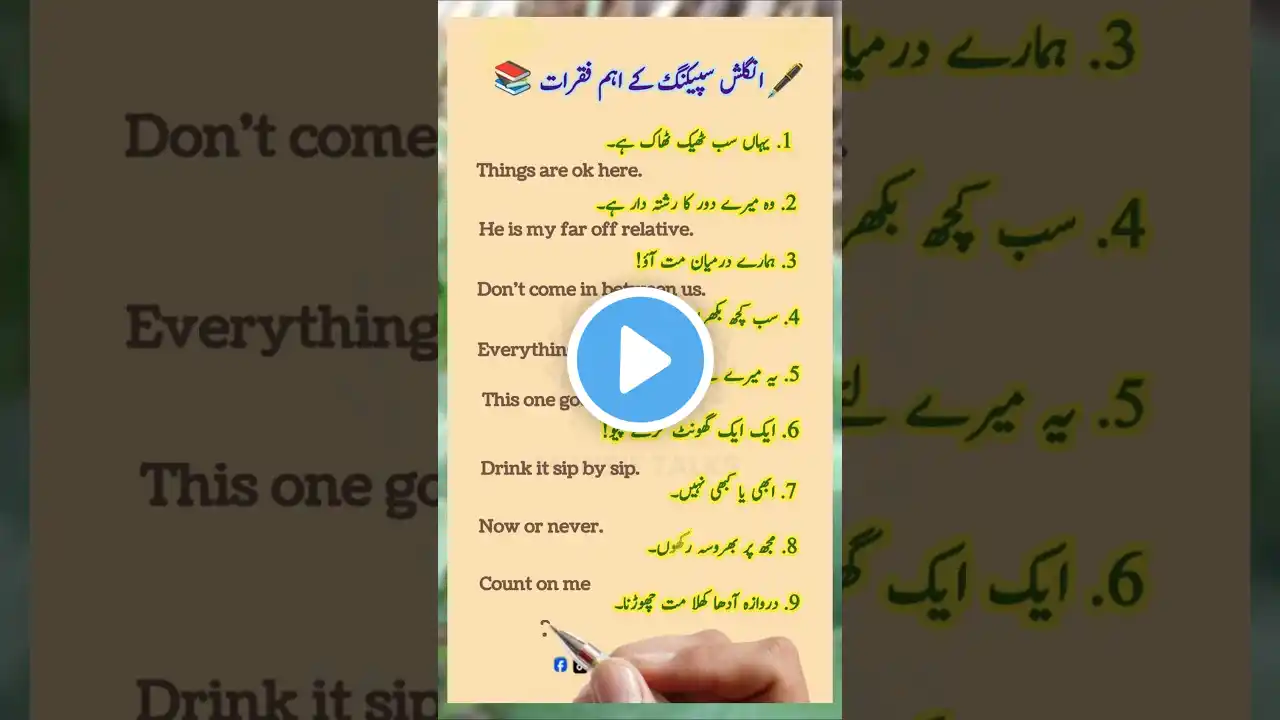 انگلش سپیکنگ کے اہم فقرات
1. یہاں سب ٹھیک ٹھاک ہے۔
Things are ok here.
2. وہ میرے دور کا رشتہ دار ہے۔
He is my far off relative.
3. ہمارے درمیان مت آؤ!
Don't come in between us.
4. سب کچھ بکھر
Everything
5. یہ میرے لئے
This one go
6. ایک ایک گھونٹ کرکے پیو!
Drink it sip by sip.
7. ابھی یا کبھی نہیں۔
Now or never.
8. مجھ پر بھروسہ رکھوں۔
Count on me
9. دروازہ آدھا کھلا مت چھوڑنا۔
?
Don't come
Everything
This one go
Drink it sip
3. ہمارے درمیا
4. سب کچھ بکھر
5. یہ میرے لئے
6. ایک ایک گھ